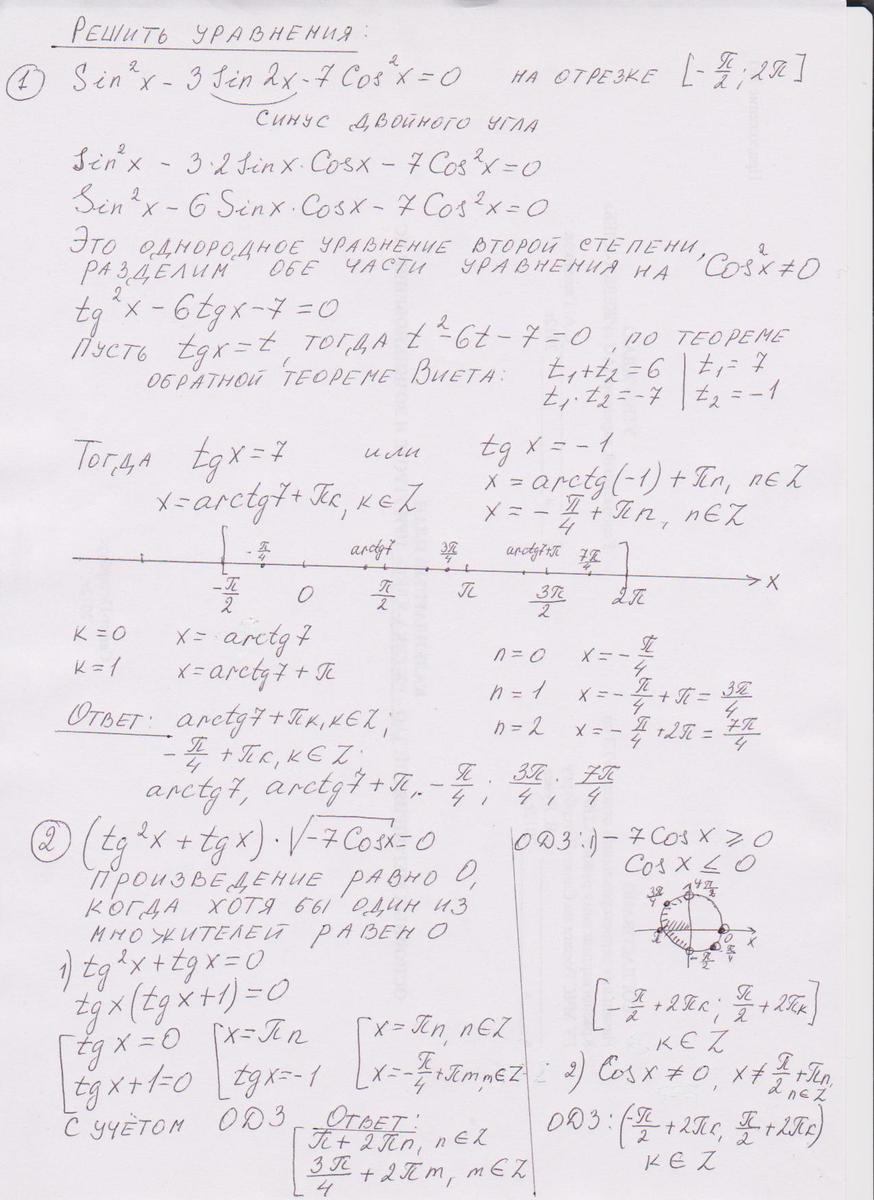 РЕШИТЬ УРАВНЕНИЯ:
① Sin²x - 3 Sin 2x - 7 Cos²x = 0 НА ОТРЕЗКЕ [-π/2; 2π]
СИНУС ДВОЙНОГО УГЛА
Sin²x - 3·2Sinx·Cosx - 7Cos²x = 0
Sin²x - 6 Sinx·Cosx - 7Cos²x = 0
ЭТО ОДНОРОДНОЕ УРАВНЕНИЕ ВТОРОЙ СТЕПЕНИ,
РАЗДЕЛИМ ОБЕ ЧАСТИ УРАВНЕНИЯ НА Cos²x ≠ 0
tg²x - 6tgx - 7 = 0
ПУСТЬ tgx = t, ТОГДА t² - 6t - 7 = 0, ПО ТЕОРЕМЕ
ОБРАТНОЙ ТЕОРЕМЕ ВИЕТА: t₁ + t₂ = 6 | t₁ = 7
t₁ · t₂ = -7 | t₂ = -1
ТОГДА tgx = 7 ИЛИ tg x = -1
x = arctg7 + πк, к ∈ Z x = arctg(-1) + πn, n ∈ Z
x = -π/4 + πn, n ∈ Z
-π/4 arctg7 3π/4 arctg7+π 7π/4
-π/2 0 π/2 π 3π/2 2π x
к = 0 x = arctg7
к = 1 x = arctg7 + π
n = 0 x = -π/4
n = 1 x = -π/4 + π = 3π/4
n = 2 x = -π/4 + 2π = 7π/4
ОТВЕТ: arctg7 + πк, к ∈ Z;
-π/4 + πк, к ∈ Z;
arctg7, arctg7 + π, -π/4; 3π/4; 7π/4
② (tg²x + tgx) · √-7Cosx = 0
ПРОИЗВЕДЕНИЕ РАВНО 0,
КОГДА ХОТЯ БЫ ОДИН ИЗ
МНОЖИТЕЛЕЙ РАВЕН 0
1) tg²x + tgx = 0
tgx(tgx + 1) = 0
[tgx = 0 [x = πn [x = πn, n ∈ Z
tgx + 1 = 0 tgx = -1 x = -π/4 + πm, m ∈ Z
С УЧЁТОМ ОДЗ ОТВЕТ:
[π + 2πn, n ∈ Z
3π/4 + 2πm, m ∈ Z
ОДЗ: 1) -7Cosx ≥ 0
Cosx ≤ 0
3π/4 π/2
π 0 x
-π/2 -π/4
[-π/2 + 2πк; π/2 + 2πк]
к ∈ Z
2) Cosx ≠ 0, x ≠ π/2 + πn,
n ∈ Z
ОДЗ: (-π/2 + 2πк, π/2 + 2πк)
к ∈ Z